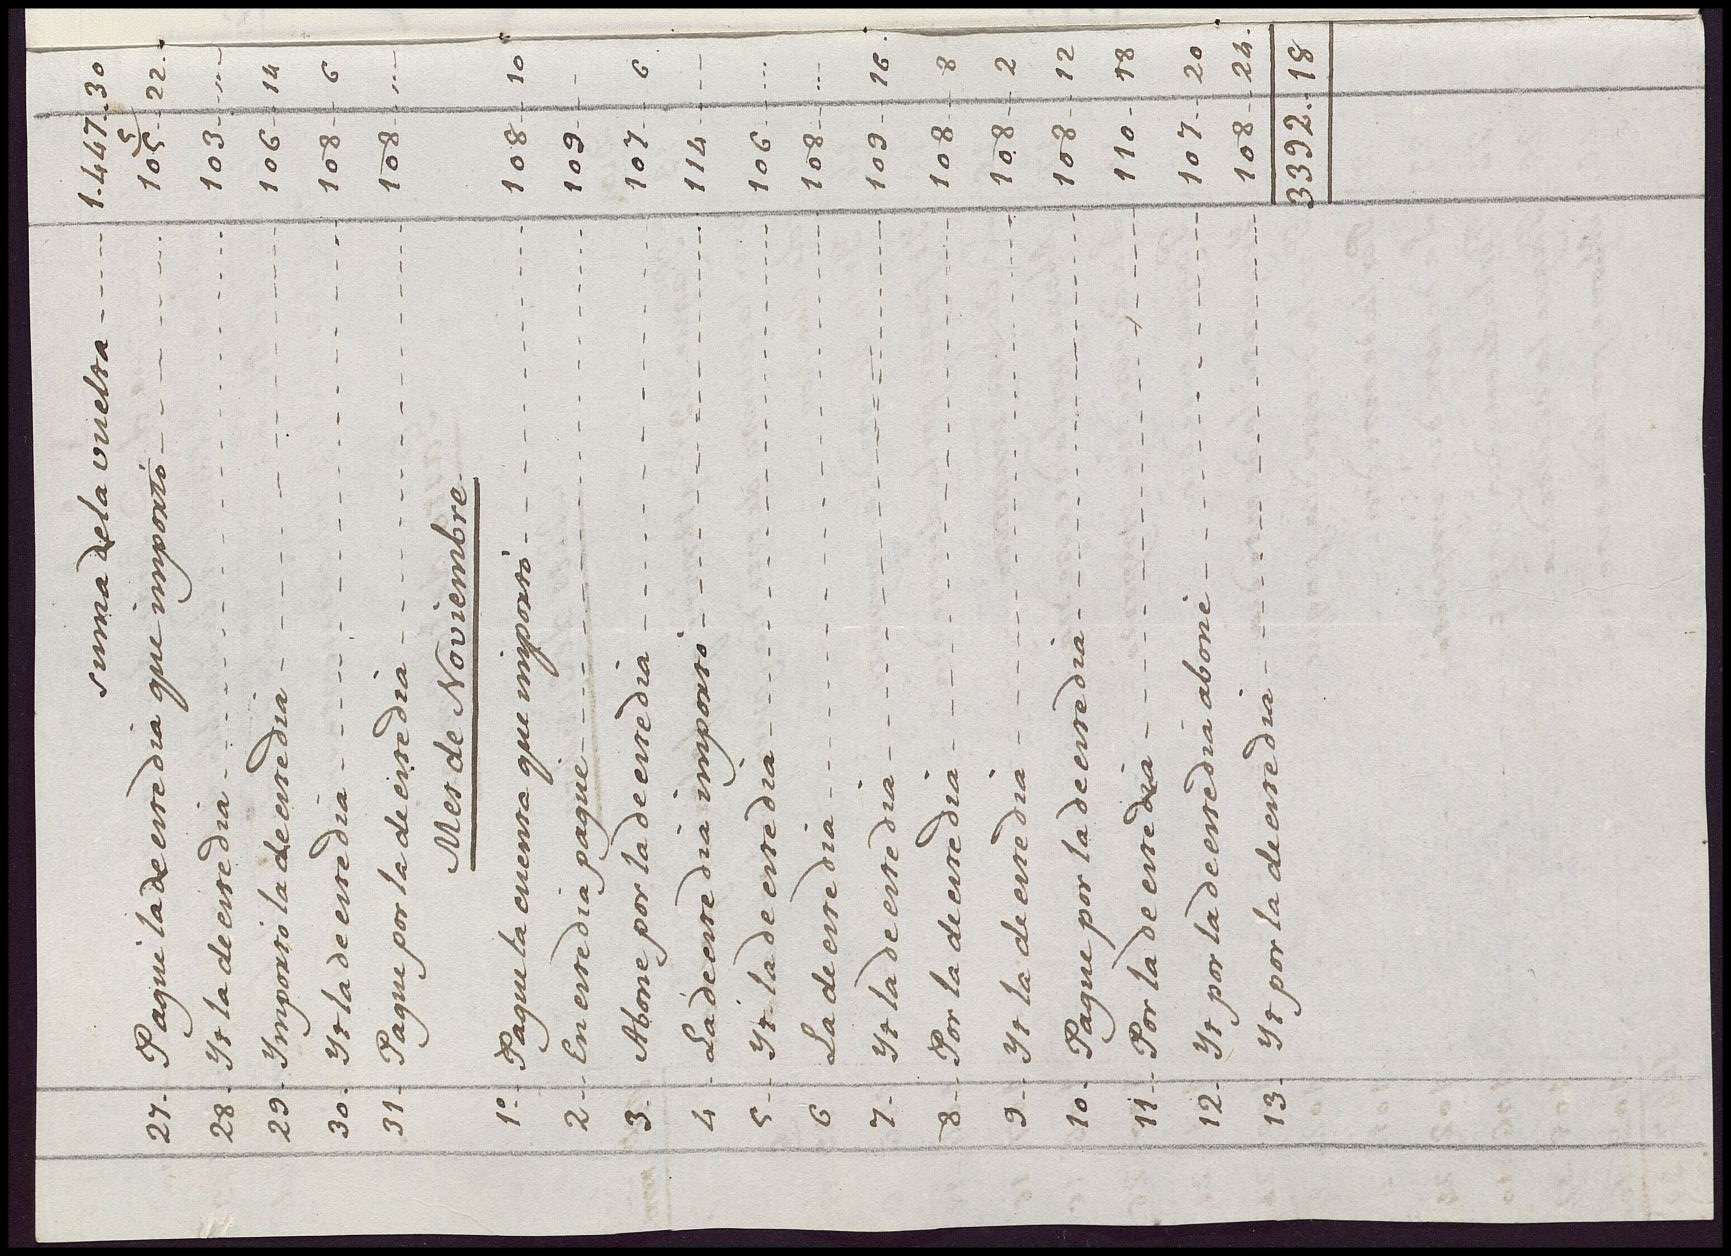 suma de la vuelta 1.447. 30
27. Pague la de enrredia que importó 105 22.
28. Yt la de enrredia 103
29. Importo la de enrredia 106 14
30. Yt la de enrredia 108 6
31. Pague por la de enrredia 108
Mes de Noviembre
1º Pague la cuenta que importó 108 10
2 En enrredia pague 109
3. Abone por la de enrredia 107 6
4 La de enrredia importó 114
5 Yt la de enrredia 106
6 La de enrredia 108
7 Yt la de enrredia 109 16.
8 Por la de enrredia 108 8
9 Yt la de enrredia 108 2
10. Pague por la de enrredia 108 12
11. Por la de enrredia 110 18
12 Yt por la de enrredia aboné 107 20
13 Yt por la de enrredia 108 24.
3392. 18